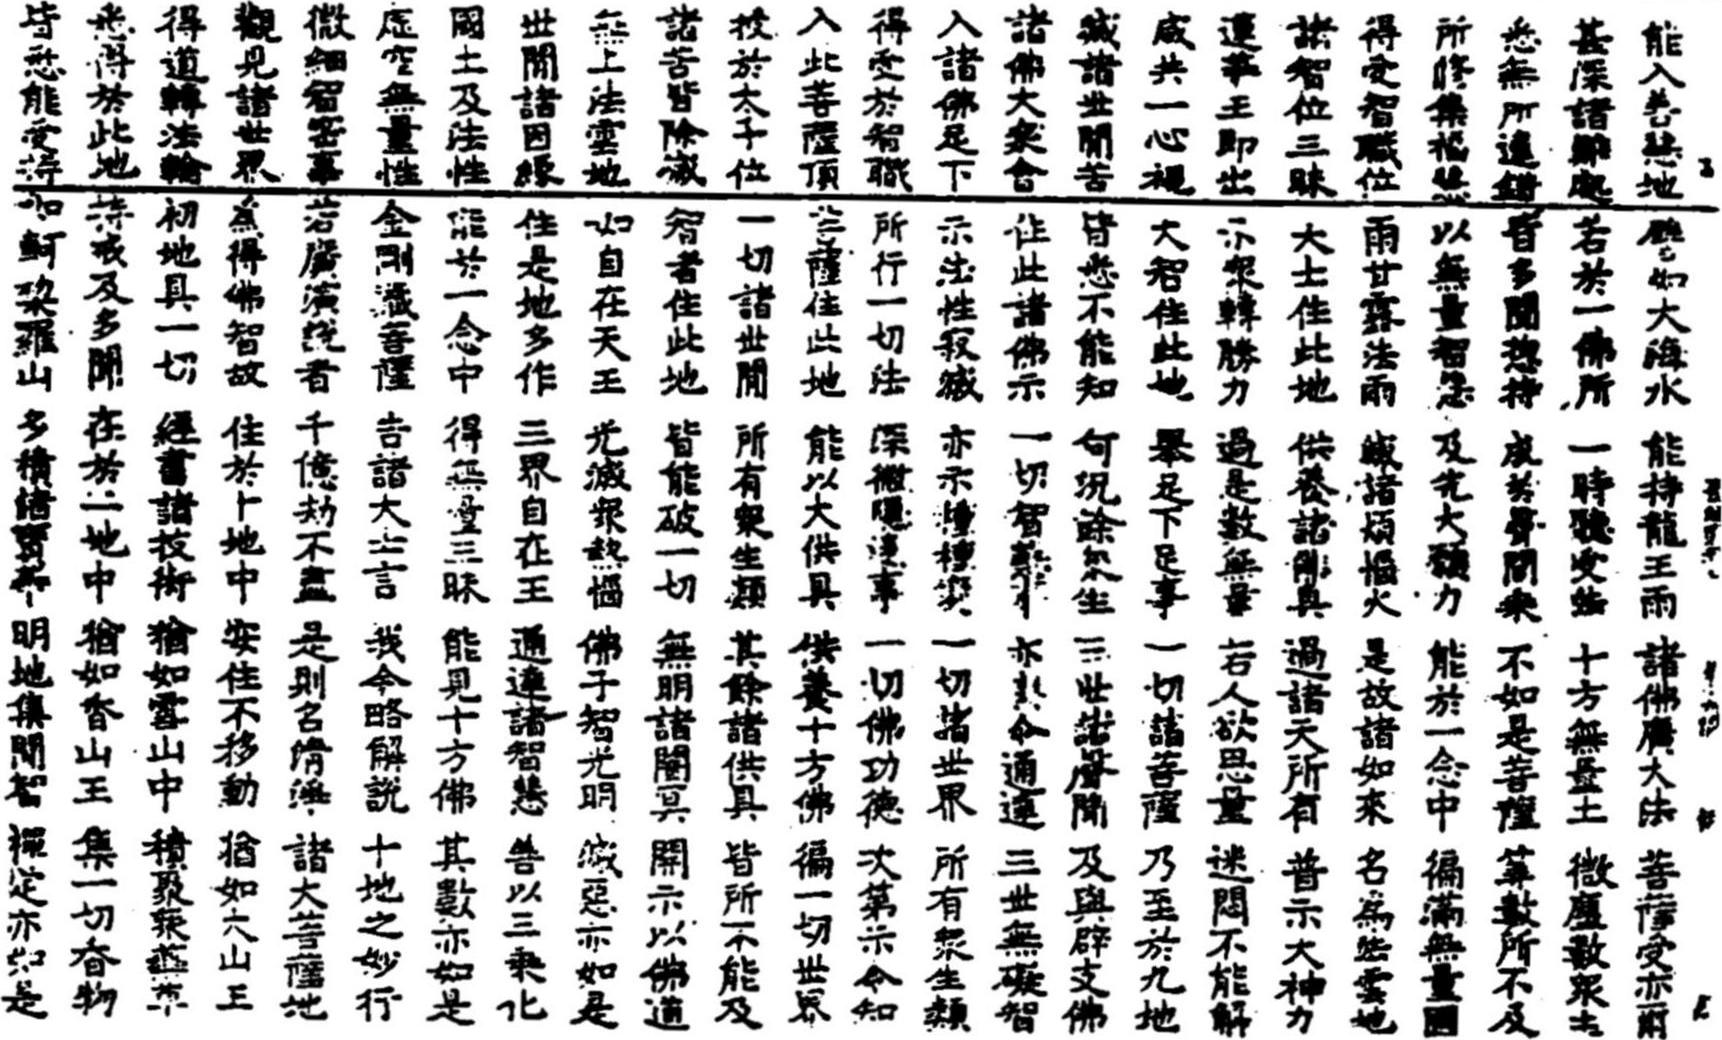 能入善慧地 譬如大海水 能持龍王雨 諸佛廣大法 菩薩受亦爾
甚深諸 若於一佛所 一時聽受法 十方無量土 微塵數眾生
悉無所違錯 皆多聞總持 成於聲聞乘 不如是菩薩 筭數所不及
所修集 以無量智慧 及先大願力 能於一念中 徧滿無量國
得受智職位 雨甘露法雨 滅諸煩惱火 是故諸如來 名為法雲地
諸智位三昧 大士住此地 供養諸佛具 過諸天所有 普示大神力
蓮華王即出 示眾轉勝力 過是數無量 若人欲思量 迷悶不能解
咸共一心視 大智住此地 舉足下足事 一切諸菩薩 乃至於九地
滅諸世間苦 皆悉不能知 何況餘眾生 三世諸聲聞 及與辟支佛
諸佛大眾會 住此諸佛示 一切智 亦教令通達 三世無礙智
入諸佛足下 示法性寂滅 亦示種種 一切諸世界 所有眾生類
得受於智職 所行一切法 深微隱遠事 一切佛功德 次第示令知
入此菩薩頂 菩薩住此地 能以大供具 供養十方佛 徧一切世界
投於太子位 一切諸世間 所有眾生類 其餘諸供具 皆所不能及
諸苦皆除滅 智者住此地 皆能破一切 無明諸闇冥 開示以佛道
無上法雲地 如自在天王 光滅眾熱惱 佛子智光明 滅惡亦如是
世間諸因緣 住是地多作 三界自在王 通達諸智慧 善以三乘化
國土及法性 能於一念中 得無量三昧 能見十方佛 其數亦如是
虛空無量性 金剛藏菩薩 告諸大士言 我今略解說 十地之妙行
微細智密事 若廣演說者 千億劫不盡 是則名清淨 諸大菩薩地
觀見諸世界 為得佛智故 住於十地中 安住不移動 猶如大山王
得道轉法輪 初地具一切 經書諸技術 猶如雪山中 積聚眾藥草
悉得於此地 持戒及多聞 在於二地中 猶如香山王 集一切香物
皆悉能受持 如軻梨羅山 多積諸寶華 明地集聞智 禪定亦如是